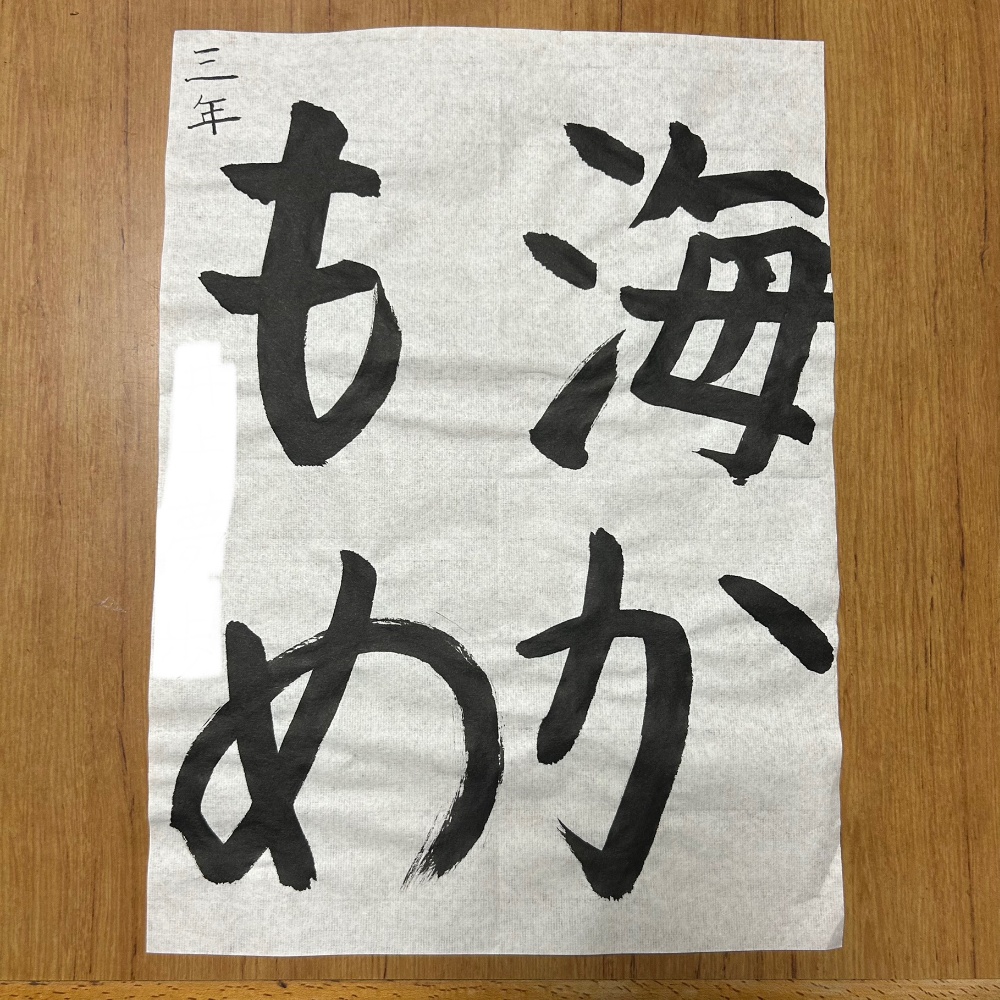 海か
もめ
三年